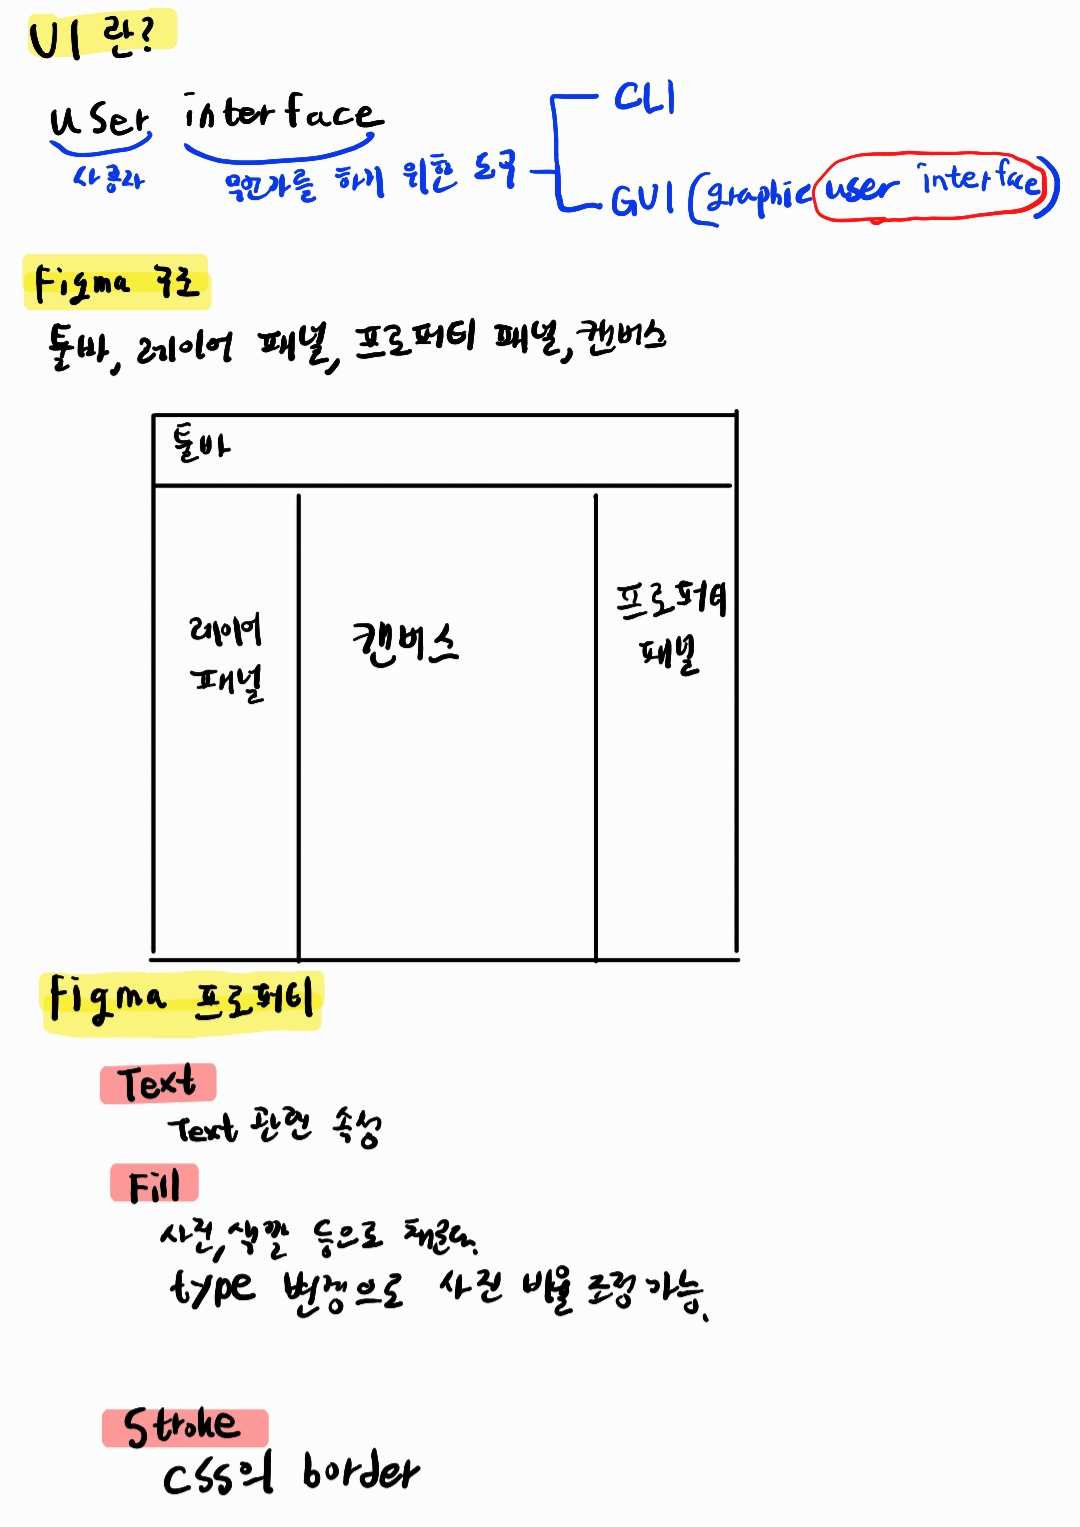 UI 란?
user interface
사용자
무언가를 하기 위한 도구
CLI
GUI (graphic user interface)
Figma 구조
툴바, 레이어 패널, 프로퍼티 패널, 캔버스
툴바
레이어
패널
캔버스
프로퍼티
패널
Figma 프로퍼티
Text
Text 관련 속성
Fill
사진, 색깔 등으로 채운다.
type 변경으로 사진 비율 조정 가능.
Stroke
CSS의 border